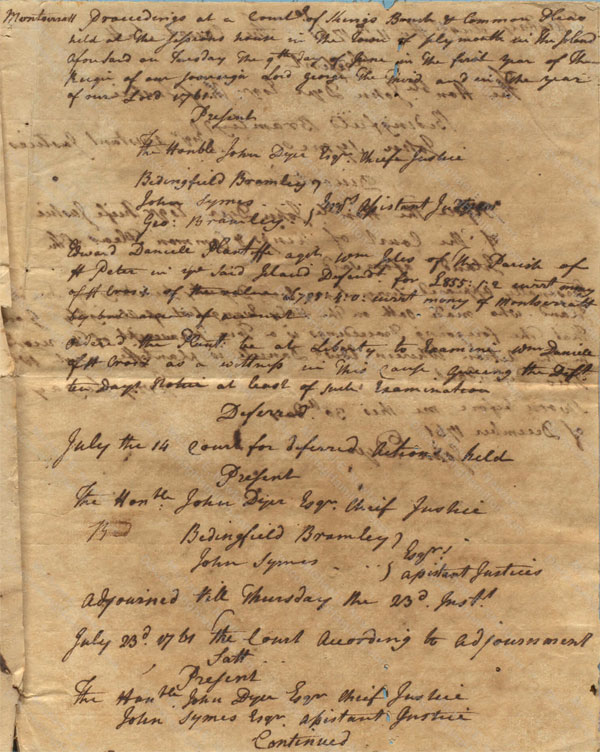 Montserrat Proceedings at a Court of Kings Bench & Common Pleas
held at the Sessions house in the Town of plymouth in the Island
aforesaid on Tuesday the 9th day of June in the first year of The
Reign of our Sovereign Lord george The Third and in The year
of our Lord 1761
Present
The Honble John Dyer Esqr. Chiefe Justice
Bedingfield Bramley
John Symes Esqrs. assistant Justices
Geo: Bramley
Edward Daniell Plantiffe agst. Wm Jiles of the Parish of
St Peter in ye said Island Defendt. for £855:1:2 currt mony
of St Croix of the value £728:8:0: currt mony of Montserratt
by ballance of account
ordered the Plent. be at Liberty to Examine Wm Daniell
of St Croix as a witness in this cause giveing the Deft.
ten Days Notice at least of such Examination
Deferred
July the 14 Court for deferred Actions held
Present
The Honble John Dyer Esqr. Chief Justice
Bedingfield Bramley
John Symes Esqrs.
assistant Justices
Adjourned till Thursday the 23d. Inst.
July 23d. 1761 The Court According to adjournment
Satt
Present
The Honble. John Dyer Esqr Chief Justice
John Symes Esqr. assistant Justice
Continued